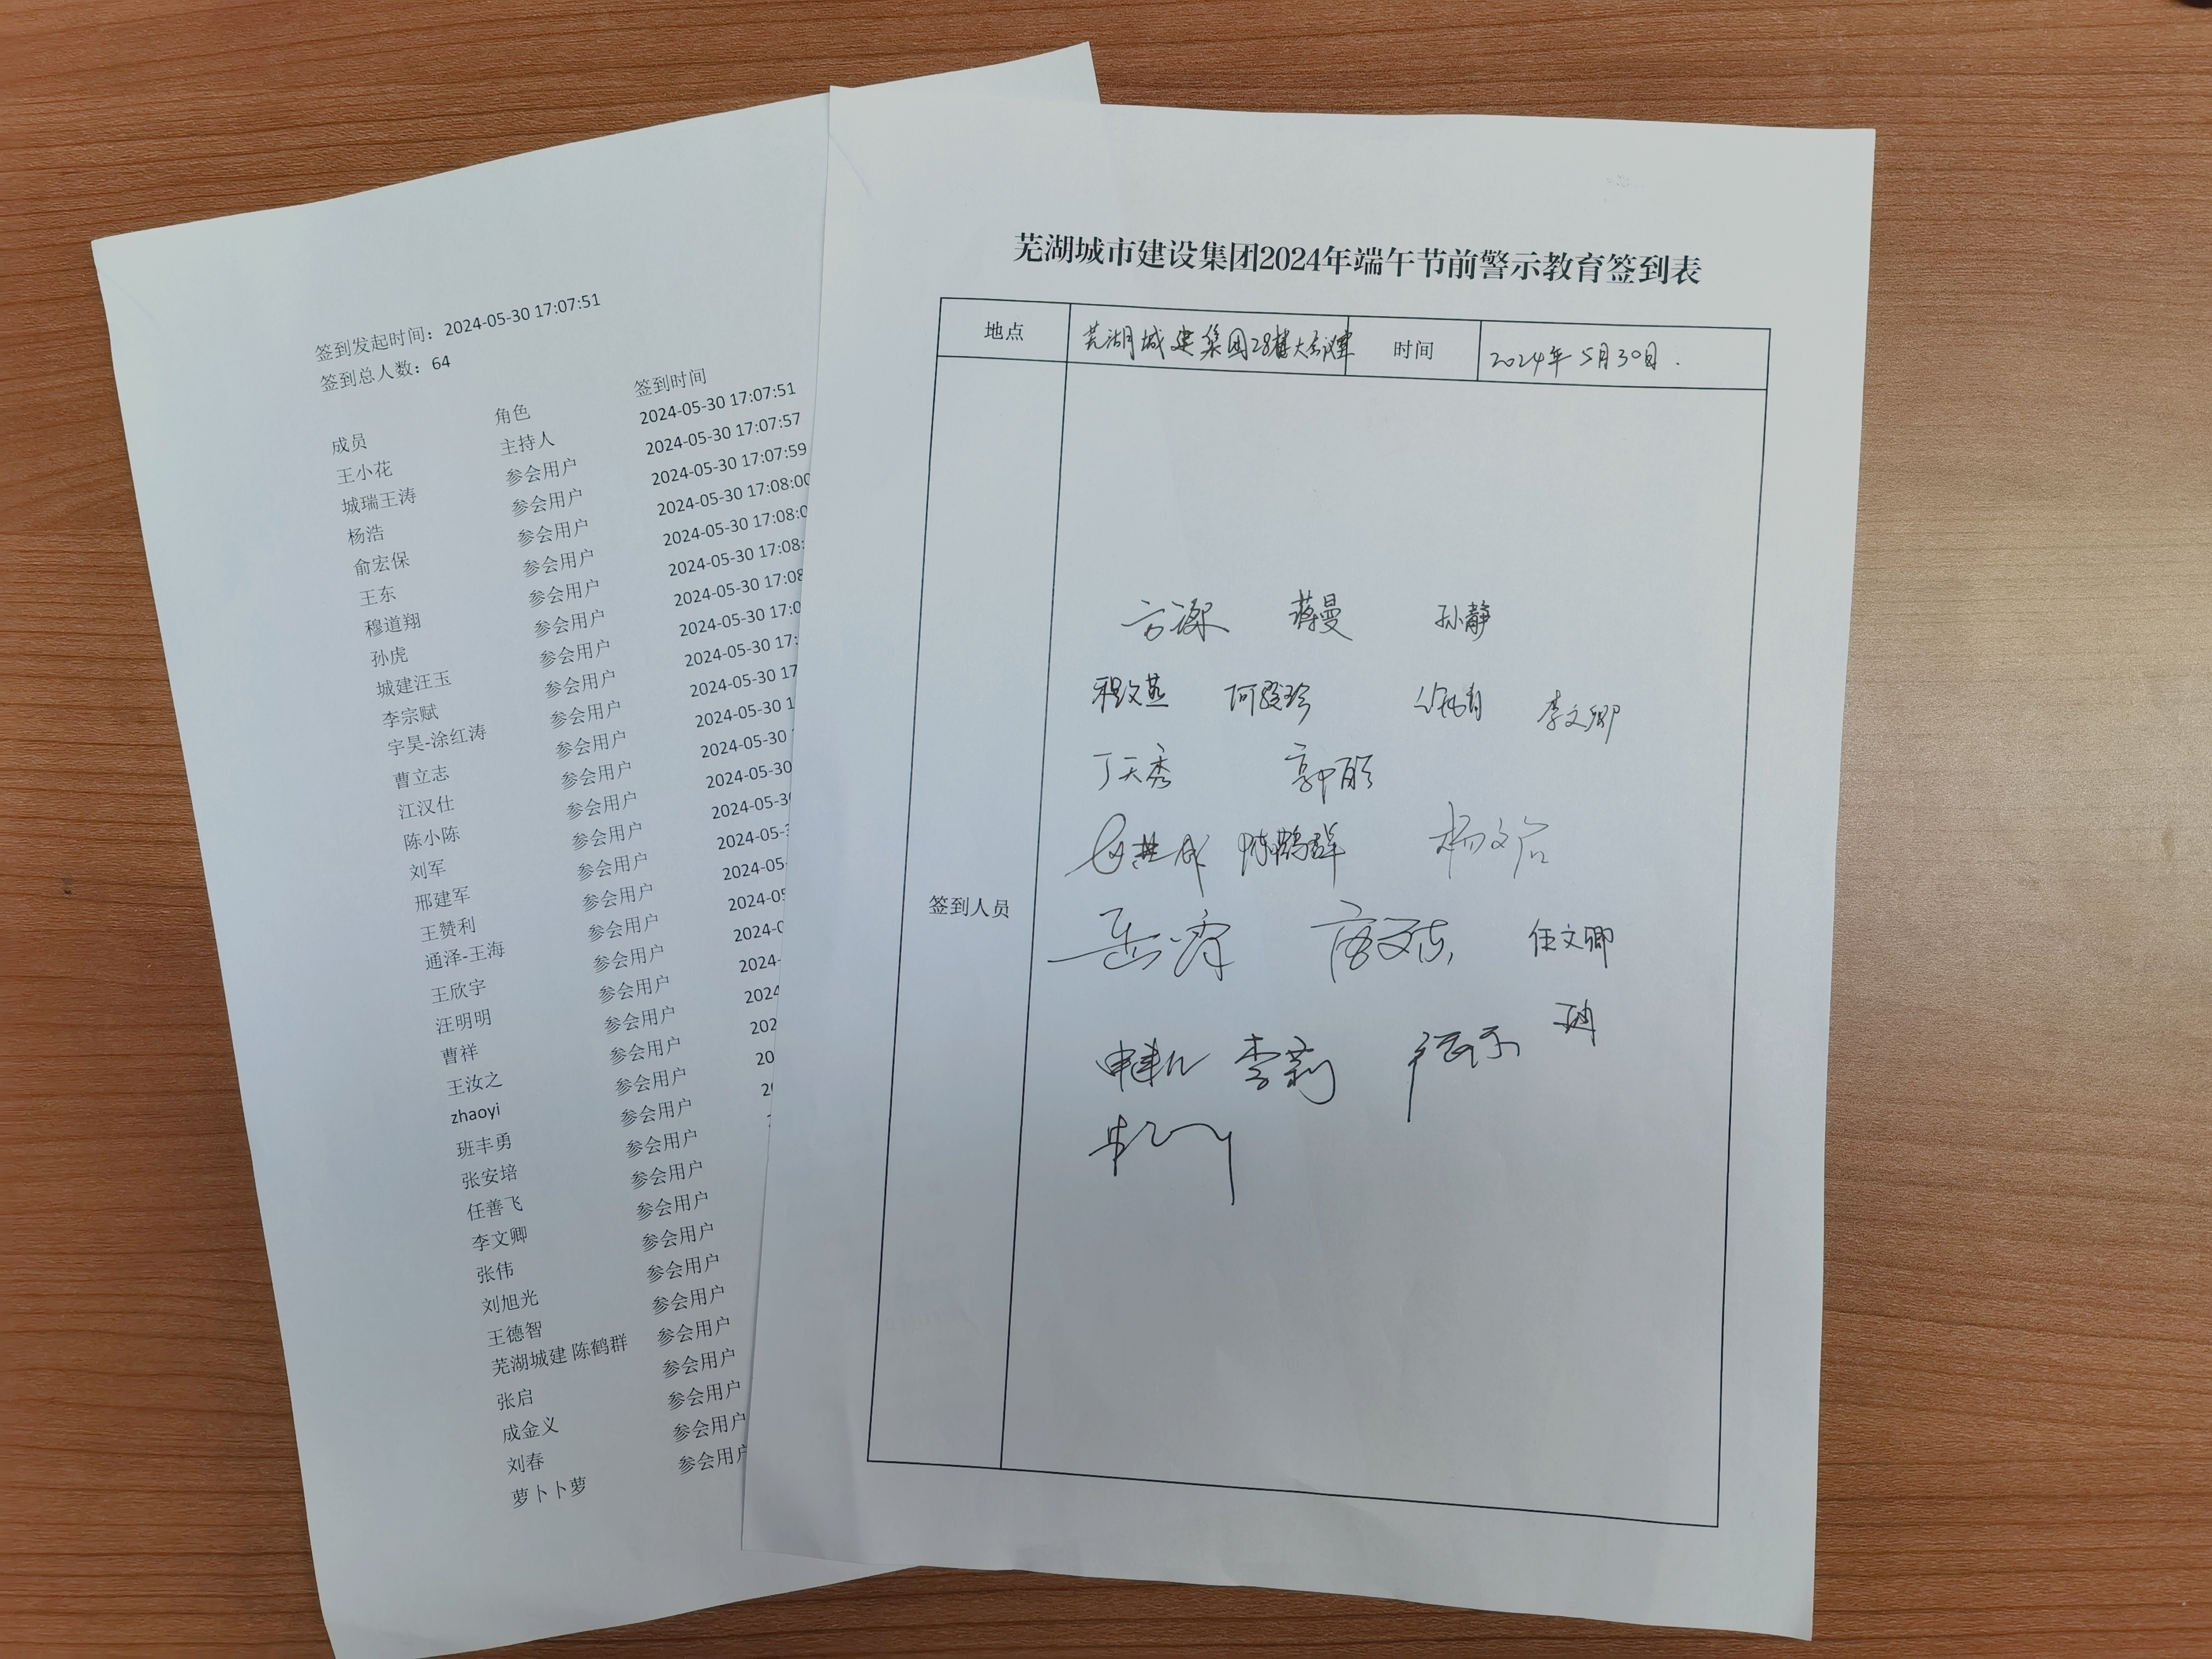 签到发起时间：2024-05-30 17:07:51
签到总人数：64
成员 角色 签到时间
王小花 主持人 2024-05-30 17:07:51
城瑞王涛 参会用户 2024-05-30 17:07:57
杨浩 参会用户 2024-05-30 17:07:59
俞宏保 参会用户 2024-05-30 17:08:00
王东 参会用户 2024-05-30 17:08:0
穆道翔 参会用户 2024-05-30 17:08:
孙虎 参会用户 2024-05-30 17:08
城建汪玉 参会用户 2024-05-30 17:0
李宗赋 参会用户 2024-05-30 17:
宇昊-涂红涛 参会用户 2024-05-30 17
曹立志 参会用户 2024-05-30 1
江汉仕 参会用户 2024-05-30
陈小陈 参会用户 2024-05-30
刘军 参会用户 2024-05-3
邢建军 参会用户 2024-05-
王赞利 参会用户 2024-05-
通泽-王海 参会用户 2024-05
王欣宇 参会用户 2024-0
汪明明 参会用户 2024-
曹祥 参会用户 2024
王汝之 参会用户 202
zhaoyi 参会用户 20
班丰勇 参会用户 2
张安培 参会用户
任善飞 参会用户
李文卿 参会用户
张伟 参会用户
刘旭光 参会用户
王德智 参会用户
芜湖城建 陈鹤群 参会用户
张启 参会用户
成金义 参会用户
刘春 参会用户
萝卜卜萝 参会用户
芜湖城市建设集团2024年端午节前警示教育签到表
地点 芜湖城建集团28楼大会议室 时间 2024年5月30日.
签到人员
蒋曼 孙静
程文燕 李文卿
丁天秀 郭丽
陈鹤群 杨文启
任文卿
李莉